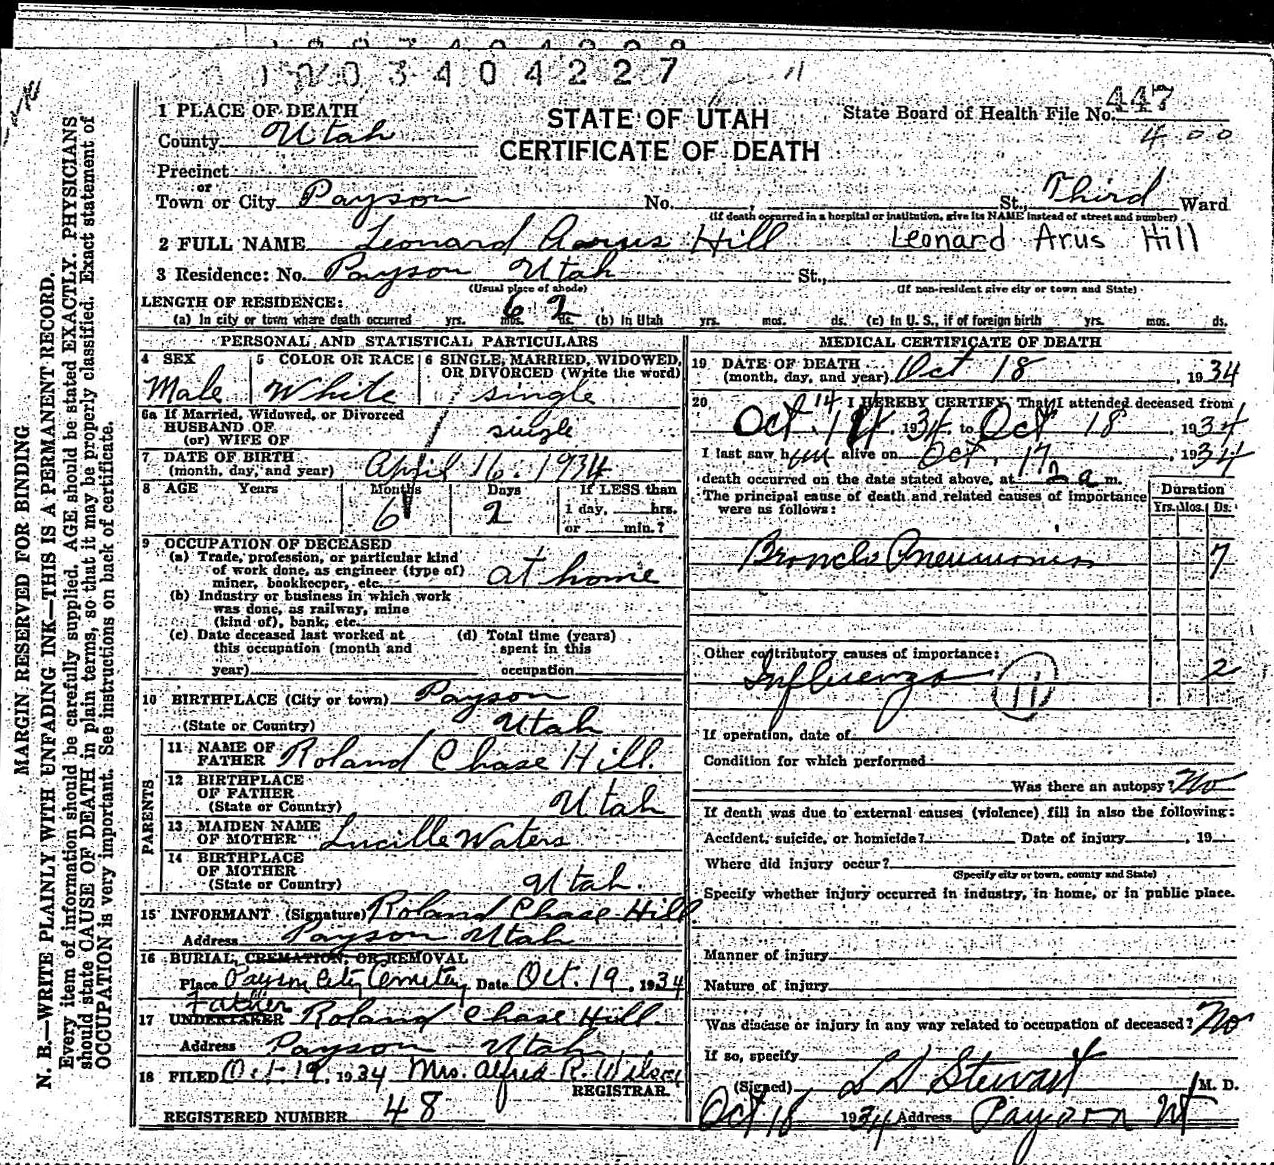 0 3 4 0 4 2 2 7
1 PLACE OF DEATH
County Utah
Precinct
or
Town or City Payson No. , St., Third Ward
(If death occurred in a hospital or institution, give its NAME instead of street and number)
STATE OF UTAH
CERTIFICATE OF DEATH
State Board of Health File No. 447
400
2 FULL NAME Leonard Hill Leonard Arus Hill
3 Residence: No. Payson Utah St.,
(Usual place of abode) (If non-resident give city or town and State)
LENGTH OF RESIDENCE:
(a) In city or town where death occurred yrs. 6 mos. 2 ds. (b) In Utah yrs. mos. ds. (c) In U. S., if of foreign birth yrs. mos. ds.
PERSONAL AND STATISTICAL PARTICULARS
4 SEX
Male
5 COLOR OR RACE
White
6 SINGLE, MARRIED, WIDOWED, OR DIVORCED (Write the word)
single
6a If Married, Widowed, or Divorced
HUSBAND OF
(or) WIFE OF
single
7 DATE OF BIRTH
(month, day, and year) April 16. 1934
8 AGE Years Months Days If LESS than
6 2 1 day, hrs.
or min.?
9 OCCUPATION OF DECEASED
(a) Trade, profession, or particular kind
of work done, as engineer (type of)
miner, bookkeeper, etc. at home
(b) Industry or business in which work
was done, as railway, mine
(kind of), bank, etc.
(c) Date deceased last worked at
this occupation (month and
year)
(d) Total time (years)
spent in this
occupation
10 BIRTHPLACE (City or town) Payson
(State or Country) Utah
PARENTS
11 NAME OF
FATHER Roland Chase Hill.
12 BIRTHPLACE
OF FATHER
(State or Country) Utah
13 MAIDEN NAME
OF MOTHER Lucille Waters
14 BIRTHPLACE
OF MOTHER
(State or Country) Utah.
15 INFORMANT (Signature) Roland Chase Hill.
Address Payson Utah
16 BURIAL, CREMATION, OR REMOVAL
Place Payson City Cemetery Date Oct. 19, 1934
Father
17 UNDERTAKER Roland Chase Hill.
Address Payson Utah
18 FILED Oct 19, 1934 Mrs. Alfred R. Wilson
REGISTRAR.
REGISTERED NUMBER 48
MEDICAL CERTIFICATE OF DEATH
19 DATE OF DEATH
(month, day, and year) Oct 18, 1934
20 I HEREBY CERTIFY, That I attended deceased from
Oct. 14 1934 to Oct 18, 1934
I last saw him alive on Oct. 17, 1934
death occurred on the date stated above, at 2 a m.
The principal cause of death and related causes of importance
were as follows:
Duration
Yrs. Mos. Ds.
Broncho Pneumonia 7
Other contributory causes of importance:
Influenza 11 2
If operation, date of
Condition for which performed
Was there an autopsy? No
If death was due to external causes (violence) fill in also the following:
Accident, suicide, or homicide? Date of injury , 19
Where did injury occur?
(Specify city or town, county and State)
Specify whether injury occurred in industry, in home, or in public place.
Manner of injury
Nature of injury
Was disease or injury in any way related to occupation of deceased? No
If so, specify
(Signed) L D Stewart M. D.
Oct 18 1934 Address Payson Ut
MARGIN RESERVED FOR BINDING
N. B.—WRITE PLAINLY WITH UNFADING INK—THIS IS A PERMANENT RECORD.
Every item of information should be carefully supplied. AGE should be stated EXACTLY. PHYSICIANS
should state CAUSE OF DEATH in plain terms, so that it may be properly classified. Exact statement of
OCCUPATION is very important. See instructions on back of certificate.